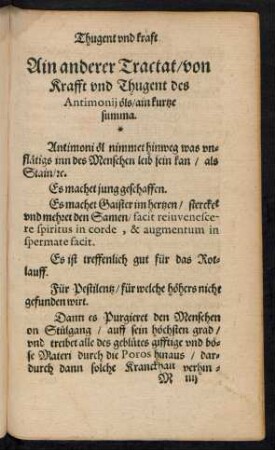 Thugent vnd kraft
Ain anderer Tractat/von
Krafft vnd Thugent des
Antimonij öls/ain kurtze
summa.
*
Antimoni öl nimmet hinweg was vn-
flätigs inn des Menschen leib sein kan / als
Stain/ꝛc.
Es machet jung geschaffen.
Es machet Gaister im hertzen / stercket
vnd mehret den Samen/ facit reiuvenesce-
re spiritus in corde, & augmentum in
spermate facit.
Es ist treffenlich gut für das Rot-
lauff.
Für Pestilentz/ für welche höhers nicht
gefunden wirt.
Dann es Purgieret den Menschen
on Stülgang / auff sein höchsten grad/
vnd treibet alle des geblütes gifftige vnd bö-
se Materi durch die Poros hinaus / dar-
durch dann solche Kranckhait verhin-
M iiij